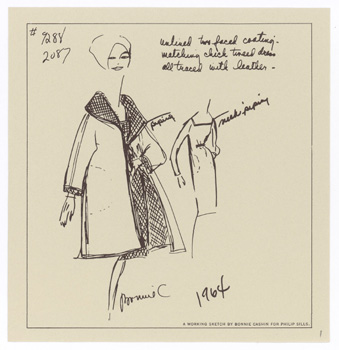 # 9288
2087
unlined two faced coating.
matching check tweed dress
all traced with leather.
piping
neck piping
Bonnie C
1964
A WORKING SKETCH BY BONNIE CASHIN FOR PHILIP SILLS
1